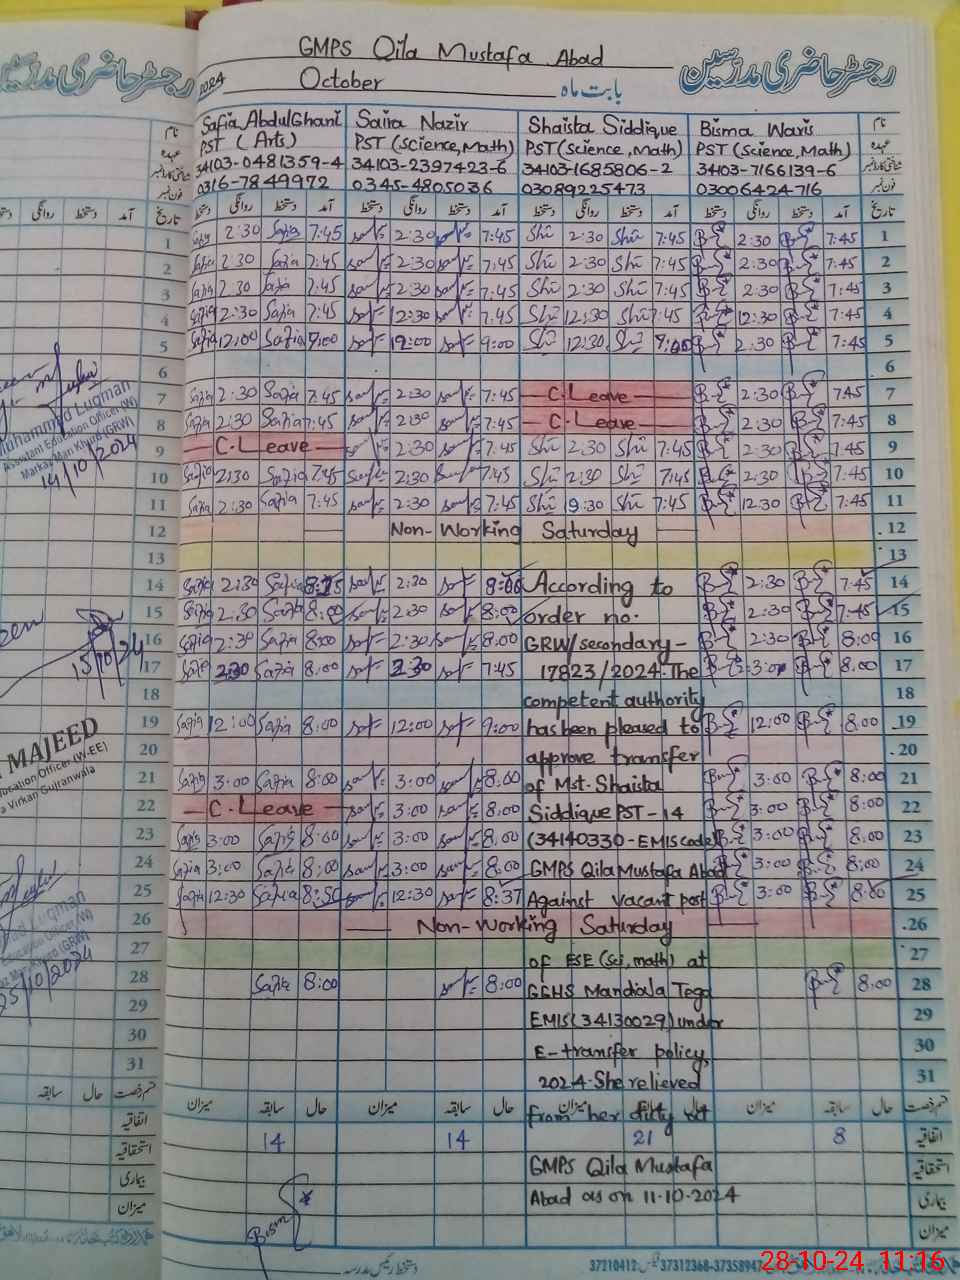 رجسٹر حاضری مدرسین
GMPS Qila Mustafa Abad
رجسٹر حاضری مدرسین
2024 October بابت ماہ
Safia AbdulGhani Saira Nazir Shaista Siddique Bisma Waris نام
PST (Arts) PST (Science, Math) PST (Science, Math) PST (Science, Math) عہدہ
34103-0481359-4 34103-2397423-6 34103-1685806-2 34103-7166139-6 شناختی کارڈ نمبر
0316-7849972 0345-4805036 03089225473 03006424-716 فون نمبر
دستخط روانگی دستخط آمد دستخط روانگی دستخط آمد دستخط روانگی دستخط آمد دستخط روانگی دستخط آمد تاریخ
1 Safia 2:30 Safia 7:45 2:30 7:45 Shu 2:30 Shu 7:45 2:30 7:45 1
2 Safia 2:30 Safia 7:45 2:30 7:45 Shu 2:30 Shu 7:45 2:30 7:45 2
3 Safia 2:30 Safia 7:45 2:30 7:45 Shu 2:30 Shu 7:45 2:30 7:45 3
4 Safia 2:30 Safia 7:45 12:30 7:45 Shu 12:30 Shu 7:45 12:30 7:45 4
5 Safia 12:00 Safia 9:00 9:00 12:30 2:30 7:45 5
6 6
7 Safia 2:30 Safia 7:45 2:30 7:45 C.Leave 2:30 7:45 7
8 Safia 2:30 Safia 7:45 2:30 7:45 C.Leave 2:30 7:45 8
9 C.Leave 2:30 7:45 Shu 2:30 Shu 7:45 2:30 7:45 9
10 Safia 2:30 Safia 7:45 2:30 7:45 Shu 2:30 Shu 7:45 2:30 7:45 10
11 Safia 2:30 Safia 7:45 2:30 7:45 Shu Shu 7:45 12:30 7:45 11
12 Non-Working Saturday 12
13 13
14 Safia 2:30 Safia 2:30 8:00 According to 2:30 7:45 14
15 Safia 2:30 Safia 8:00 2:30 8:00 order no. 2:30 7:45 15
16 Safia 2:30 Safia 8:00 2:30 8:00 GRW/secondary- 2:30 8:00 16
17 Safia 2:30 Safia 8:00 2:30 7:45 17823/2024. The 3:00 8:00 17
18 competent authority 18
19 Safia 12:00 Safia 8:00 12:00 9:00 has been pleased to 12:00 8:00 19
20 approve transfer 20
21 Safia 3:00 Safia 8:00 3:00 8:00 of Mst. Shaista 3:00 8:00 21
22 C.Leave 3:00 8:00 Siddique PST-14 3:00 8:00 22
23 Safia 3:00 Safia 8:00 3:00 8:00 (34140330-EMIS code) 3:00 8:00 23
24 Safia 3:00 Safia 8:00 3:00 8:00 GMPS Qila Mustafa Abad 3:00 8:00 24
25 Safia 12:30 Safia 8:30 12:30 8:37 Against vacant post 3:00 8:00 25
26 Non-Working Saturday 26
27 of ESE (sci, math) at 27
28 Safia 8:00 8:00 GGHS Mandiala Tega 8:00 28
29 EMIS (34130029) under 29
30 E-transfer policy, 30
31 2024. She relieved 31
میزان سابقہ حال میزان سابقہ حال from her duty at میزان سابقہ حال قسم رخصت
14 14 21 8 اتفاقیہ
GMPS Qila Mustafa استحقاقیہ
Abad as on 11-10-2024 بیماری
میزان
Bism
دستخط رئیس مدرسہ
37210412 37312368
سابقہ حال قسم رخصت
اتفاقیہ
استحقاقیہ
بیماری
میزان
Muhammad Luqman
Assistant Education Officer (W)
Markaz Man Khurd (GRW)
14/10/2024
15/10/24
MAJEED
Officer (W-EE)
Virkan Gujranwala
Luqman
25/10/2024
28-10-24 11:16